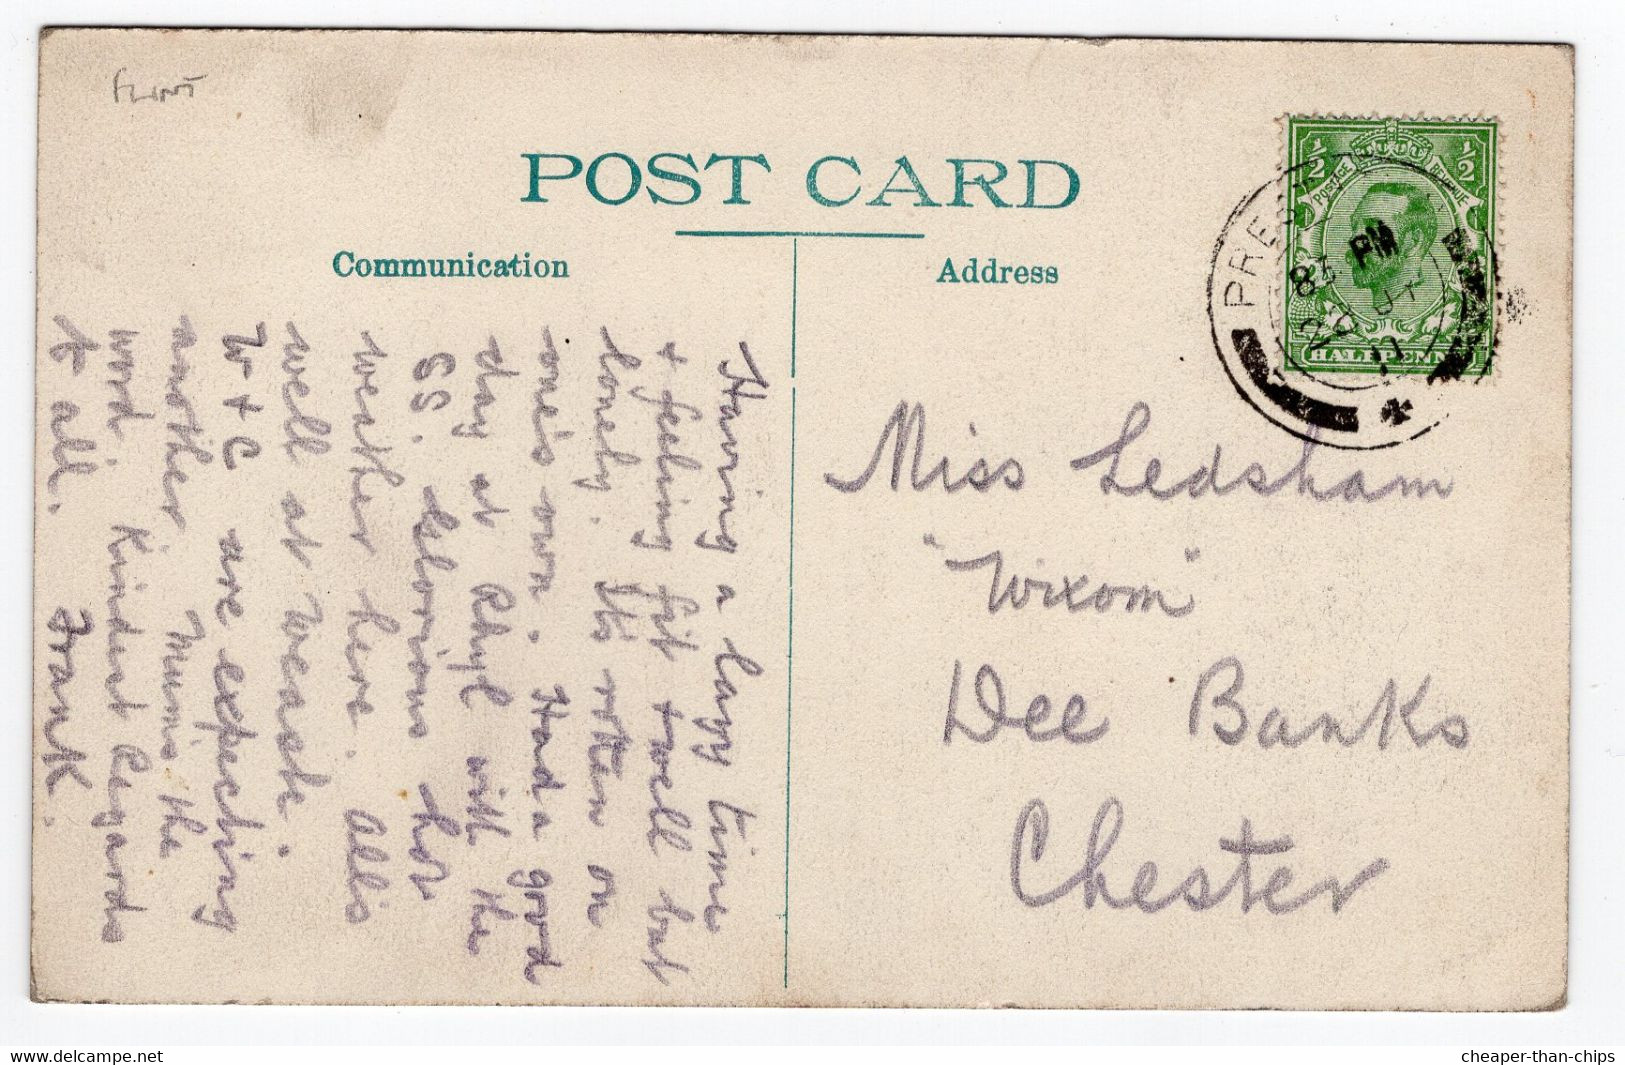 FLINT
POST CARD
Communication
Address
½ ½
POSTAGE REVENUE
HALFPENNY
PM
11
Having a lazy time
& feeling fit & well but
lonely. It's rotten on
one's own. Had a good
day at Rhyl with the
SS. Glorious hot
weather here. All's
well at Weaste.
W + C are expecting
another. Mum's the
word. Kindest Regards
to all. Frank.
Miss Ledsham
"Wixom"
Dee Banks
Chester
delcampe.net
cheaper-than-chips